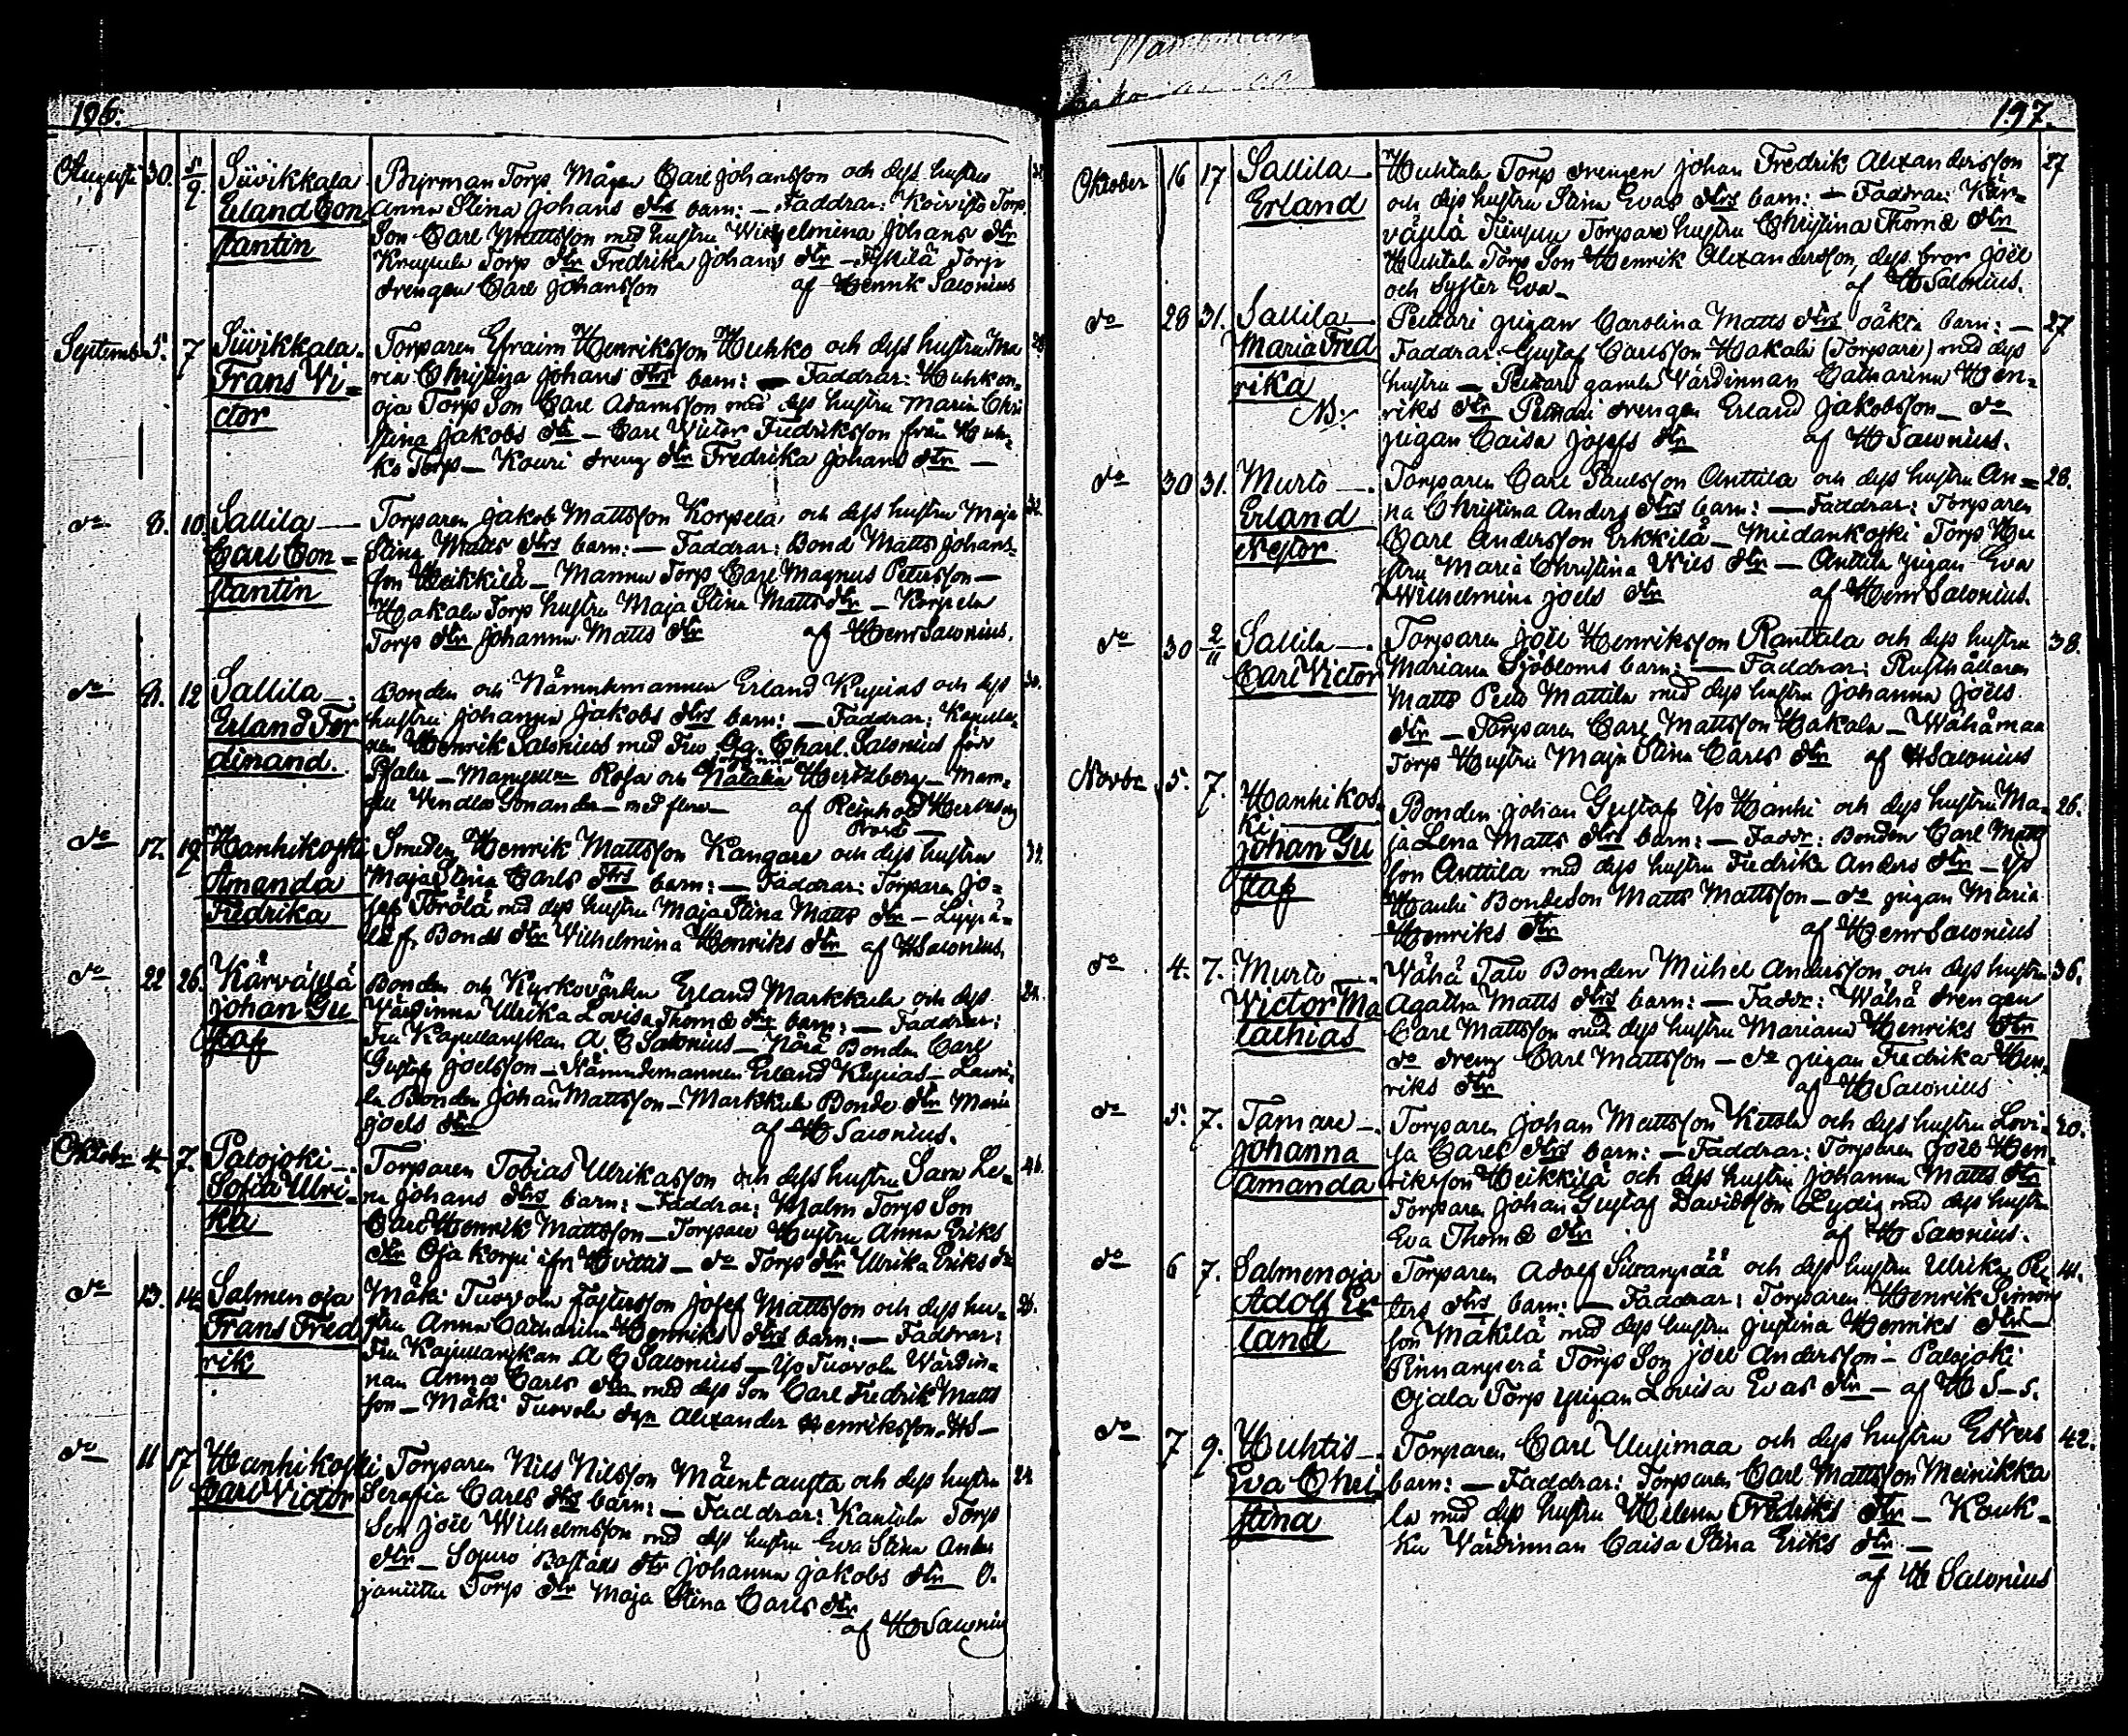 196.
Augusti 30. 5/9. Siivikkala Byrman Torp Mågen Carl Johansson och dess hustru
Erland Con Anna Stina Johans dtrs barn: — Faddrar: Koivisto Torp
stantin Son Carl Mattsson med hustru Wilhelmina Johans dtr
Torp dtr Fredrika Johans dtr — Torp
drengen Carl Johansson af Henrik Salonius
Septemb 5. 7 Siivikkala. Torparen Efraim Henriksson Huhko och dess hustru Ma 28
Frans Vi= ria Christina Johans dtrs barn: — Faddrar: Huhkon=
ctor oja Torp Son Carl Adamsson med dess hustru Maria Chri
stina Jakobs dtr — Carl Victor Fredriksson från Huh=
ko Torp — Kouri dreng dtr Fredrika Johans dtr —
do 8. 10. Sallila — Torparen Jakob Mattsson Korpela och dess hustru Maja 32.
Carl Con= Stina Matts dtrs barn: — Faddrar: Bond Matts Johans=
stantin son Heikkilä — Mannu Torp Carl Magnus Petersson —
Hakala Torp hustru Maja Stina Matts dtr — Korpela
Torp dtr Johanna Matts dtr af Henr Salonius.
do 9. 12 Sallila —. Bonden och Nämndemannen Erland Kupias och dess 30.
Erland Fer hustru Johanna Jakobs dtrs barn: — Faddrar: Kapella=
dinand. nen Henrik Salonius med Fru Ag. Charl. Salonius född
Pfaler — Rosa och Natalia Hertzberg — Mam=
sell Vendla Sonander — med flera — af Reinhold Hertzberg
Prost —
do 17. 19 Hanhikoski Smeden Henrik Mattsson Kangare och dess hustru 34.
Amanda Maja Stina Carls dtrs barn: — Faddrar: Torparen Jo=
Fredrika sef Törölä med dess hustru Maja Stina Matts dtr — Lippä=
Bonds dtr Vilhelmina Henriks dtr af H Salonius.
do 22 26. Kärväsjä Bonden och Kyrkovärden Erland Markkula och dess
Johan Gu Värdinna Ulrika Lovisa Thomæ dtr barn: — Faddrar:
staf Fru Kapellanskan A. C Salonius — Nõrä Bonden Carl
Gustaf Joelsson — Nämndemannen Erland Kupias — Lauri=
la Bonden Johan Mattsson — Markkula Bonde dtr Maria
Joels dtr af H Salonius.
Oktobr 4. 7. Palojoki —. Torparen Tobias Ulrikasson och dess hustru Sara Le=
Sofia Ulri= na Johans dtrs barn: — Faddrar: Malm Torp Son
ka Carl Henrik Mattsson — Torpare Hustru Anna Eriks
dtr Oja korpi ifrn Hvittis — do Torp dtr Ulrika Eriks dr
do 13. 14. Salmenoja Mäki Tuovola fostersson Josef Mattsson och dess hu=
Frans Fred stru Anna Catharina Henriks dtrs barn: — Faddrar:
rik Fru Kapellanskan A C Salonius — Ys Tuovola Wärdin=
nan Anna Carls dtr med dess Son Carl Fredrik Matts
son — Mäki Tuovola Alexander Henriksson. HS —
do 11 17 Hanhikoski Torparen Nils Nilsson Mäentausta och dess hustru 24
Carl Victor Serafia Carls dtrs barn: — Faddrar: Kantola Torp
Son Joel Wilhelmsson med dess hustru Eva Stina Anders
dtr — Sopuro dtr Johanna Jakobs dtr O.
janiittu Torp dtr Maja Stina Carls dtr
af H Salonius
197.
Oktober 16 17 Sallila — Huhtala Torp drengen Johan Fredrik Alexandersson 27
Erland och dess hustru Stina Evas dtrs barn: — Faddrar: Kär=
väselä Torpare hustru Christina Thomæ dtr
Huhtala Torp Son Henrik Alexandersson, dess bror Joël
och Syster Eva — af H Salonius.
do 28 31. Sallila — Peltari pigan Carolina Matts dtrs oäkta barn: — 27
Maria Fred Faddrar: Gustaf Carlsson Hakala (Torpare) med dess
rika hustru — Peltari gamla Värdinnan Catharina Hen=
NB: riks dtr — Peltari drengen Erland Jakobsson — do
pigan Caisa Josefs dtr af H Salonius.
do 30 31. Murto —. Torparen Carl Paulsson Anttila och dess hustru An= 28.
Erland na Christina Anders dtrs barn: — Faddrar: Torparen
Nestor Carl Andersson Erkkilä — Miedankoski Torp Hu
stru Maria Christina Nils dtr — Anttila pigan Eva
Wilhelmina Joels dtr af Henr Salonius.
do 30 2/11 Sallila —. Torparen Joel Henriksson Ranttala och dess hustru 38.
Carl Victor Mariana Sjöbloms barn: — Faddrar: Rusthållaren
Matts Mattila med dess hustru Johanna Joels
dtr — Torparen Carl Mattsson Hakala — Wähämaa
Torp Hustru Maja Stina Carls dtr af H Salonius
Novbr 5. 7. Hanhikos= Bonden Johan Gustaf Ys Hanhi och dess hustru Ma= 26.
ki — ja Lena Matts dtrs barn: — Faddr: Bonden Carl Matts
Johan Gu son Anttila med dess hustru Fredrika Anders dtr — Ys
staf Hanhi Bondeson Matts Mattsson — do pigan Maria
Henriks dtr af Henr Salonius
do 4. 7. Murto —. Wähä Talo Bonden Michel Andersson och dess hustru 36.
Victor Ma Agatha Matts dtrs barn: — Faddr: Wähä drengen
tathias Carl Mattsson med dess hustru Mariana Henriks dtr
do dreng Carl Mattsson — do pigan Fredrika Hen=
riks dtr af H Salonius
do 5. 7. Tamare —. Torparen Johan Mattsson Kettola och dess hustru Lovi= 20.
Johanna sa Carls dtrs barn: — Faddrar: Torparen Joel Hen=
Amanda riksson Heikkilä och dess hustru Johanna Matts dtr
Torparen Johan Gustaf Davidsson Lydig med dess hustru
Eva Thomæ dtr af H Salonius.
do 6 7. Salmenoja Torparen Adolf Siltanpää och dess hustru Ulrika Pe= 41.
Adolf Er= ters dtrs barn: — Faddrar: Torparen Henrik Simons
land son Mäkilä med dess hustru Justina Henriks dtr
Rinnanperä Torp Son Joel Andersson — Palojoki
Ojala Torp pigan Lovisa Evas dtr — af H S—s.
do 7 9. Huhtis —. Torparen Carl Uusimaa och dess hustru Esters 42.
Eva Chri barn: — Faddrar: Torparen Carl Mattsson Meinikka
stina la med dess hustru Helena Fredriks dtr — Kouk=
ku Värdinnan Caisa Stina Eriks dtr —
af H Salonius